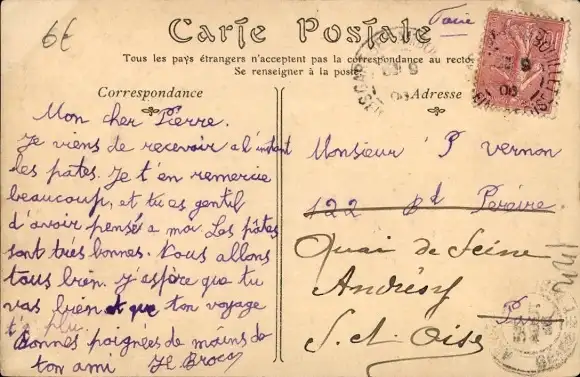 6€
Carte Postale
Tous les pays étrangers n'acceptent pas la correspondance au recto.
Se renseigner à la poste
Correspondance
Adresse
Mon cher Pierre.
Je viens de recevoir a l'instant
les pates. Je t'en remercie
beaucoup, et tu es gentil
d'avoir pensé a moi Les pâtes
sont très bonnes. Nous allons
tous bien. j'aspère que tu
vas bien et que ton voyage
t'a plu.
Bonnes poignées de mains de
ton ami
Monsieur P Vernon
122 Bd Pereire
Quai de Seine
Andrésy
Paris
S. et Oise